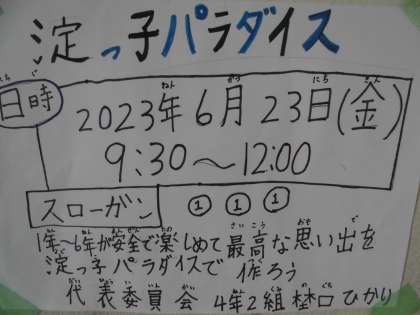 淀っ子パラダイス
日時
2023年6月23日(金)
9:30～12:00
スローガン
① ① ①
1年～6年が安全で楽しめて最高な思い出を
淀っ子パラダイスで 作ろう
代表委員会 4年2組 埜口ひかり